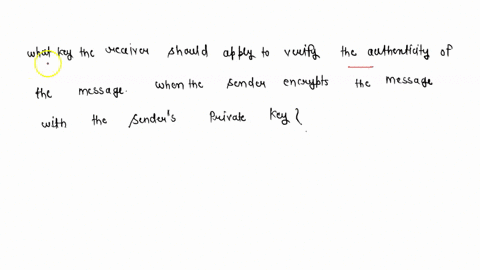 what key the receiver should apply to verify the authenticity of
the message. when the sender encrypts the message
with the sender's Private key {